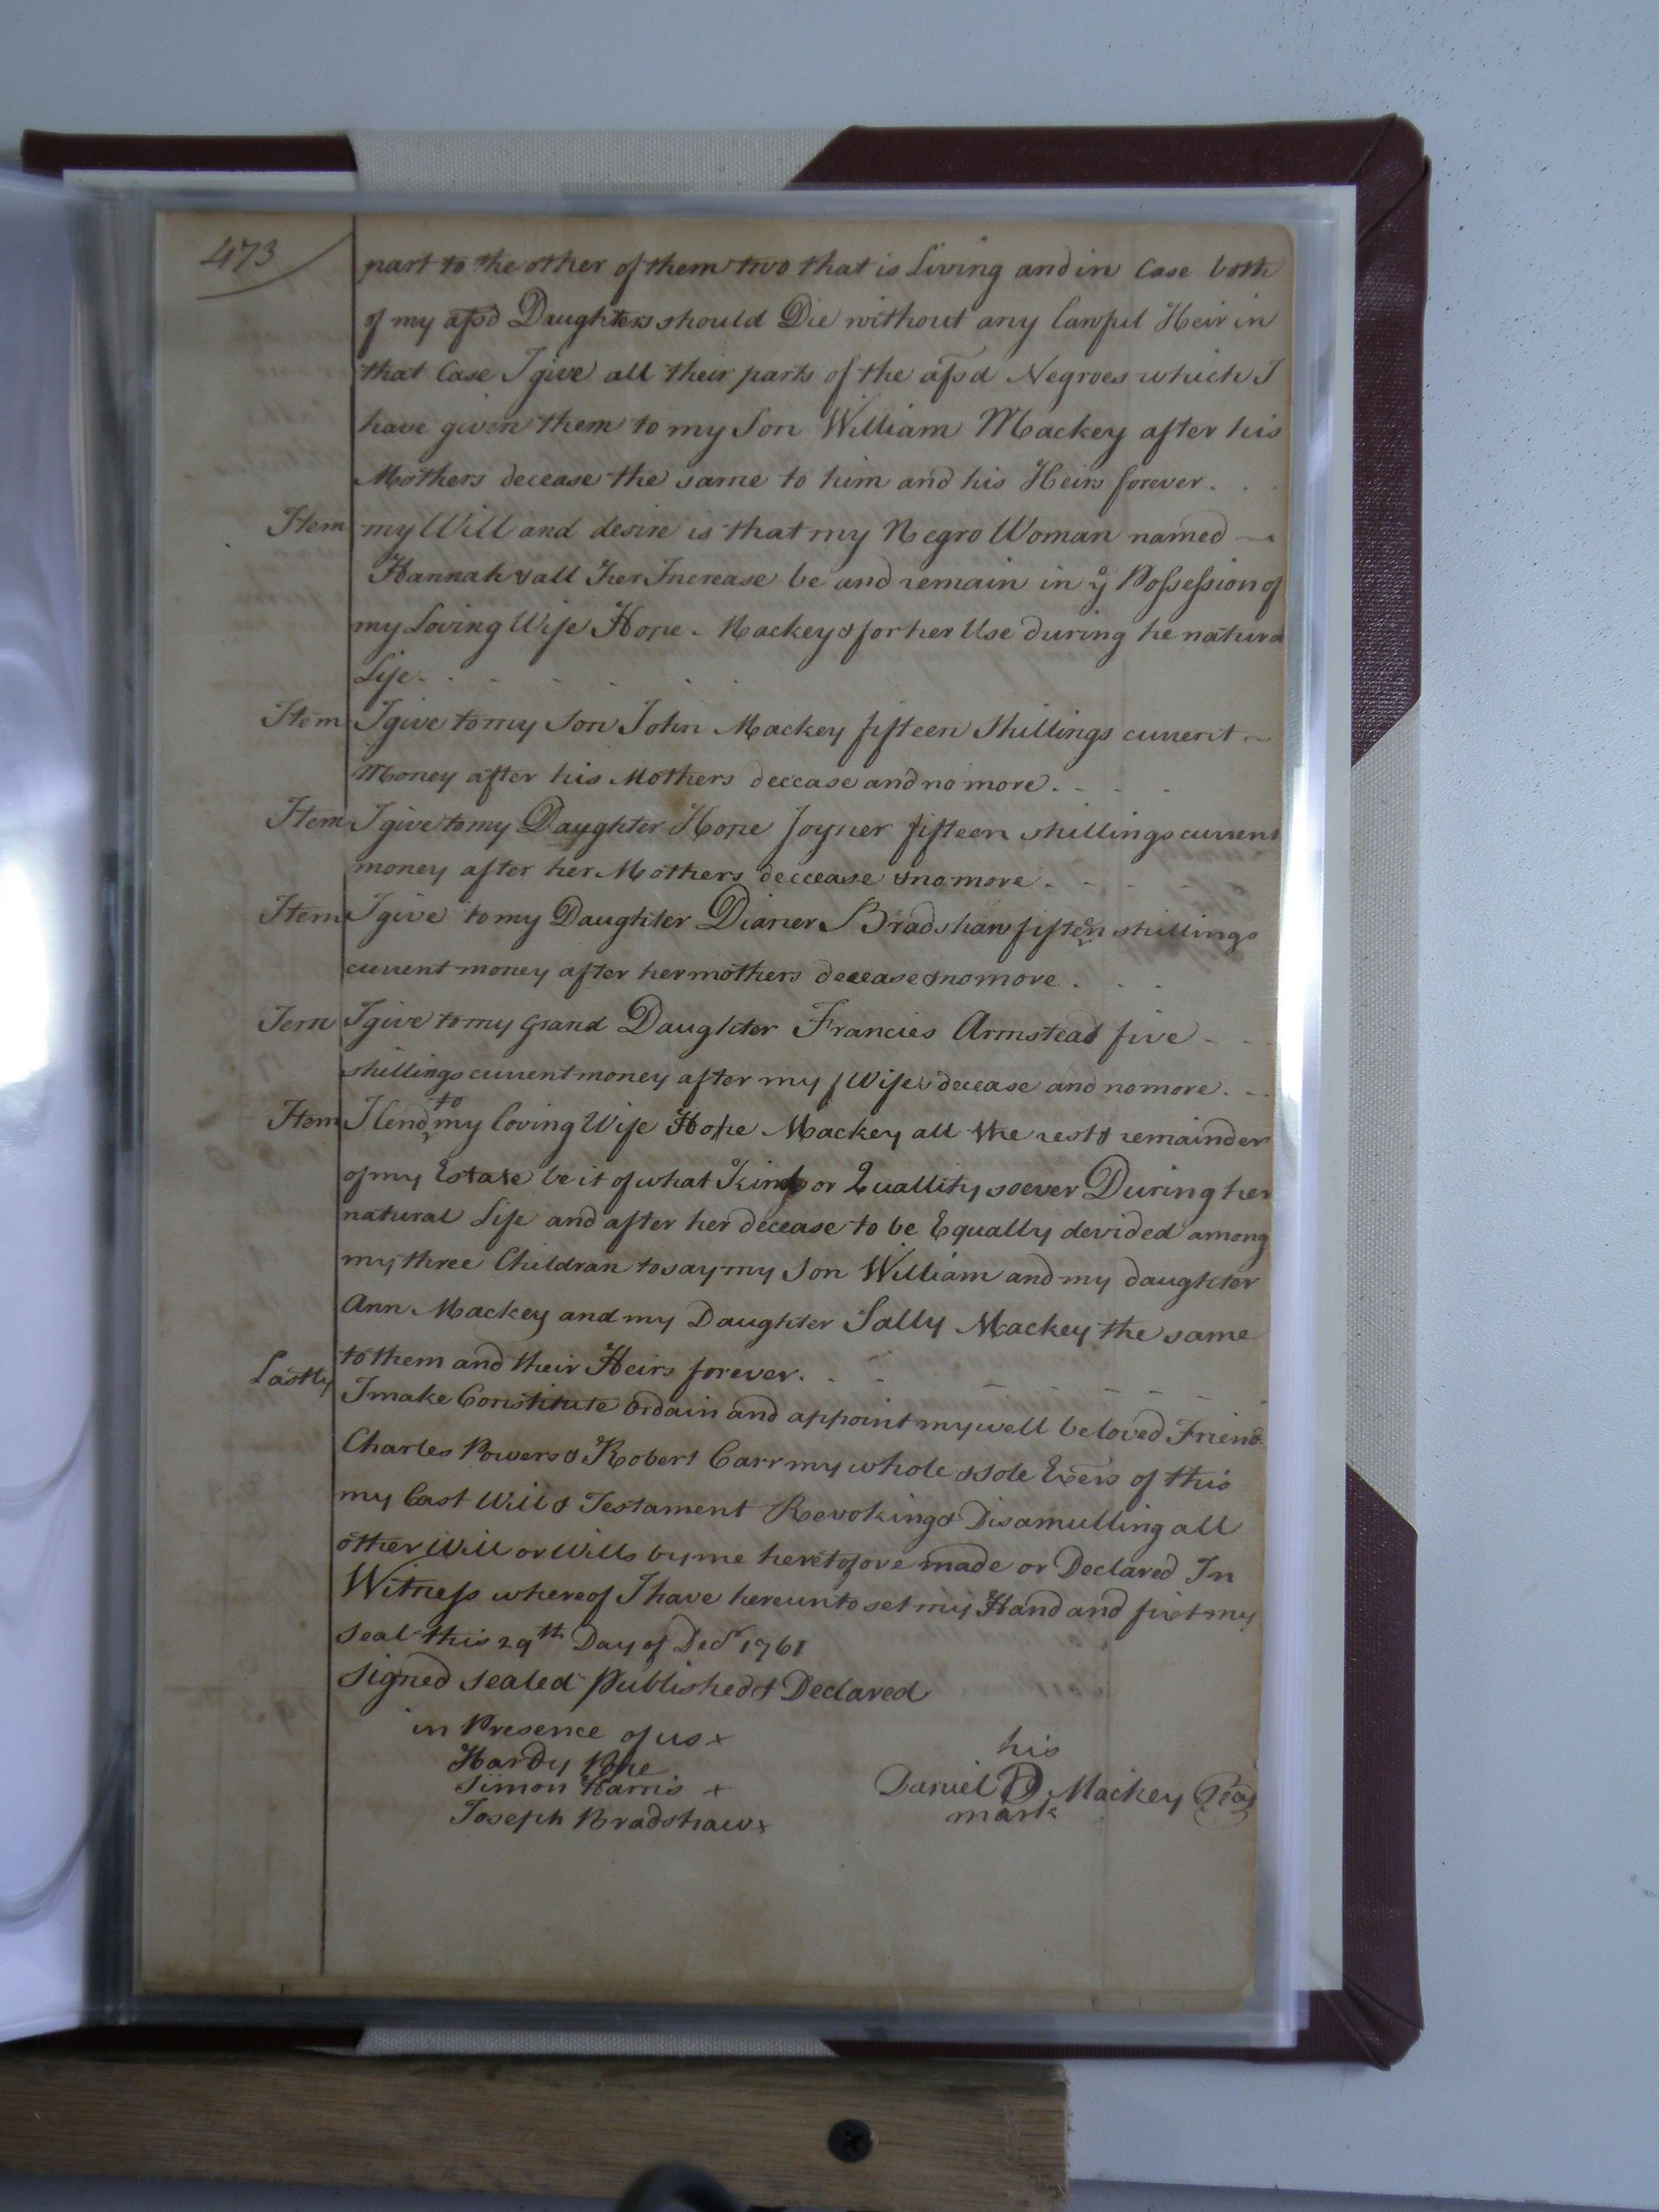 473
part to the other of them two that is Living and in Case both
of my afsd Daughters should Die without any lawful Heir in
that Case I give all their parts of the afsd Negroes which I
have given them to my Son William Mackey after his
Mothers decease the same to him and his Heirs forever. . .
Item my Will and desire is that my Negro Woman named
Hannah & all her Increase be and remain in ye Possession of
my Loving Wife Hope Mackey & for her Use during he natural
Life. . . . . .
Item I give to my Son John Mackey fifteen Shillings current
Money after his Mothers deccase and no more. . . .
Item I give to my Daughter Hope Joyner fifteen shillings current
money after her Mothers deccease & no more. . . .
Item I give to my Daughter Dianer Bradshaw fifteen shillings
current money after her mothers decease & no more. . .
Iem I give to my Grand Daughter Francies Armstead five
shillings current money after my Wifes decease and no more. . .
Item I lend to my loving Wife Hope Mackey all the rest & remainder
of my Estate be it of what Kind or Quallity soever During her
natural Life and after her decease to be Equally devided among
my three Childran to say my Son William and my daughter
Ann Mackey and my Daughter Sally Mackey the same
to them and their Heirs forever. . .
Lastly I make Constitute Ordain and appoint my well beloved Friend
Charles Powers & Robert Carr my whole & sole Exers of this
my Last Will & Testament Revoking & Disanulling all
other Will or Wills by me heretofore made or Declared In
Witness whereof I have hereunto set my Hand and fixt my
Seal this 29th Day of Decr 1761
Signed Sealed Published & Declared
in Presence of us x
Hardy Pope
Simon Harris x
Joseph Bradshaw x
his
Daniel D Mackey
mark